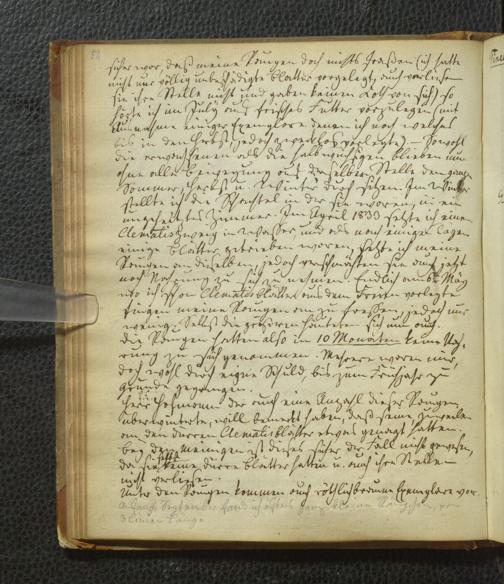 52
sicher war, daß meine Raupen doch nichts fraßen (ich hatte
nicht nur völlig unbeschädigte Blätter vorgelegt, auch verließen
sie ihre Stelle nicht und gaben keinen Koth von sich), so
hörte ich im July auf frisches Futter vorzulegen (mit
Ausnahme einiger Exemplare denen ich noch welches
bis in den Herbst jedoch zwecklos vorlegte). – Sowohl
die erwachsenen als die halbwüchsigen blieben nun
ohne alle Bewegung auf derselben Stelle den ganzen
Sommer, Herbst u. Winter durch sitzen. Im
stellte ich die Schachtel in der sie waren, in ein
ungeheiztes Zimmer. Im April 1830 setzte ich einen
Clematiszweig in Wasser und als nach einigen Tagen
einige Blätter getrieben waren, setzte ich meine
Raupen an dieselben, jedoch verschmähten sie auch jetzt
noch Nahrung zu sich zu nehmen. Endlich May
wo ich Clematisblätter aus dem Freien vorlegte
fingen meine Raupen an zu fressen, jedoch nur
wenig. Selbst die größeren häuteten sich nun auch.
Die Raupen hatten also in 10 Monaten keine Nah-
rung zu sich genommen. Mehrere waren nur,
doch wohl durch eigne Schuld, bis zum Frühjahr zu
Grunde gegangen.
Herr Hofmann der auch eine Anzahl dieser Raupen
überwinterte, will bemerkt haben, daß seine zuweilen
an den dürren Clematisblätter etwas genagt hatten.
bey den meinigen ist dieses sicher der Fall nicht gewesen,
da sie keine dürre Blätter hatten u. auch ihre Stellen
nicht verließen.
Unter den Raupen kommen auch röthlichbraune Exemplare vor.
September fand ich kleine Räupchen, von
3 Linien Länge.